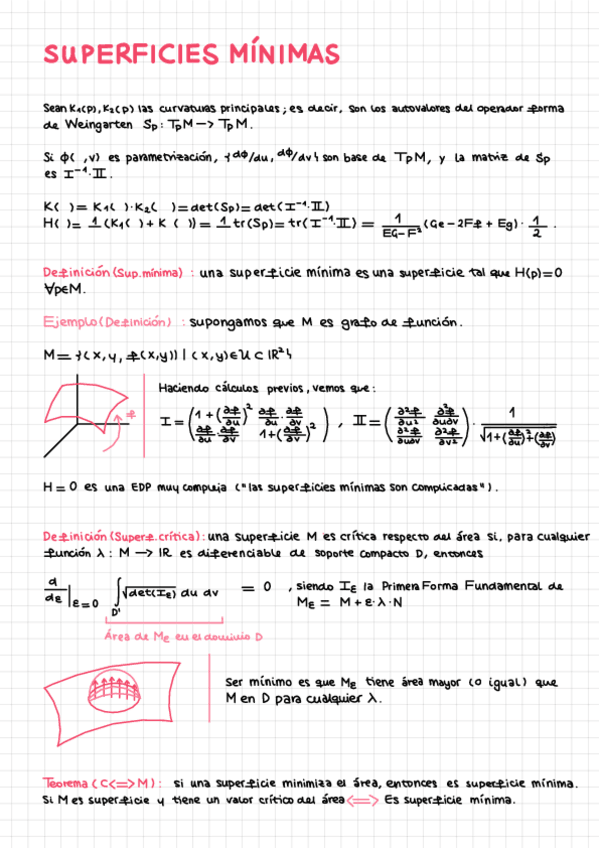 SUPERFICIES MÍNIMAS
Sean K₁(p), K₂(p) las curvaturas principales; es decir, son los autovalores del operador forma
de Weingarten Sp: TpM —> TpM.
Si φ( ,v) es parametrización, {dφ/du, dφ/dv} son base de TpM, y la matriz de Sp
es I⁻¹·II.
K( ) = K₁( )·K₂( ) = det(Sp) = det(I⁻¹·II)
H( ) = 1/2 (K₁( ) + K ( )) = 1/2 tr(Sp) = tr(I⁻¹·II) = 1/(EG-F²) (Ge - 2Ff + Eg) · 1/2 .
Definición (Sup. mínima) : una superficie mínima es una superficie tal que H(p)=0
∀p∈M.
Ejemplo (Definición) : supongamos que M es grafo de función.
M = {(x, y, f(x,y)) | (x,y) ∈ U ⊂ IR²}
Haciendo cálculos previos, vemos que:
f
I = (1 + (∂f/∂u)² ∂f/∂u · ∂f/∂v ; ∂f/∂u · ∂f/∂v 1 + (∂f/∂v)²) , II = (∂²f/∂u² ∂²f/∂u∂v ; ∂²f/∂u∂v ∂²f/∂v²) · 1/√(1+(∂f/∂u)²+(∂f/∂v))
H = 0 es una EDP muy compleja ("las superficies mínimas son complicadas").
Definición (Superf. crítica): una superficie M es crítica respecto del área si, para cualquier
función λ : M —> IR es diferenciable de soporte compacto D, entonces
d/dε |ε=0 ∫D' √det(Iε) du dv = 0 , siendo Iε la Primera Forma Fundamental de
Mε = M + ε·λ·N
Área de Mε en el dominio D
Ser mínimo es que Mε tiene área mayor (o igual) que
M en D para cualquier λ.
Teorema (C<=>M) : si una superficie minimiza el área, entonces es superficie mínima.
Si M es superficie y tiene un valor crítico del área <=> Es superficie mínima.